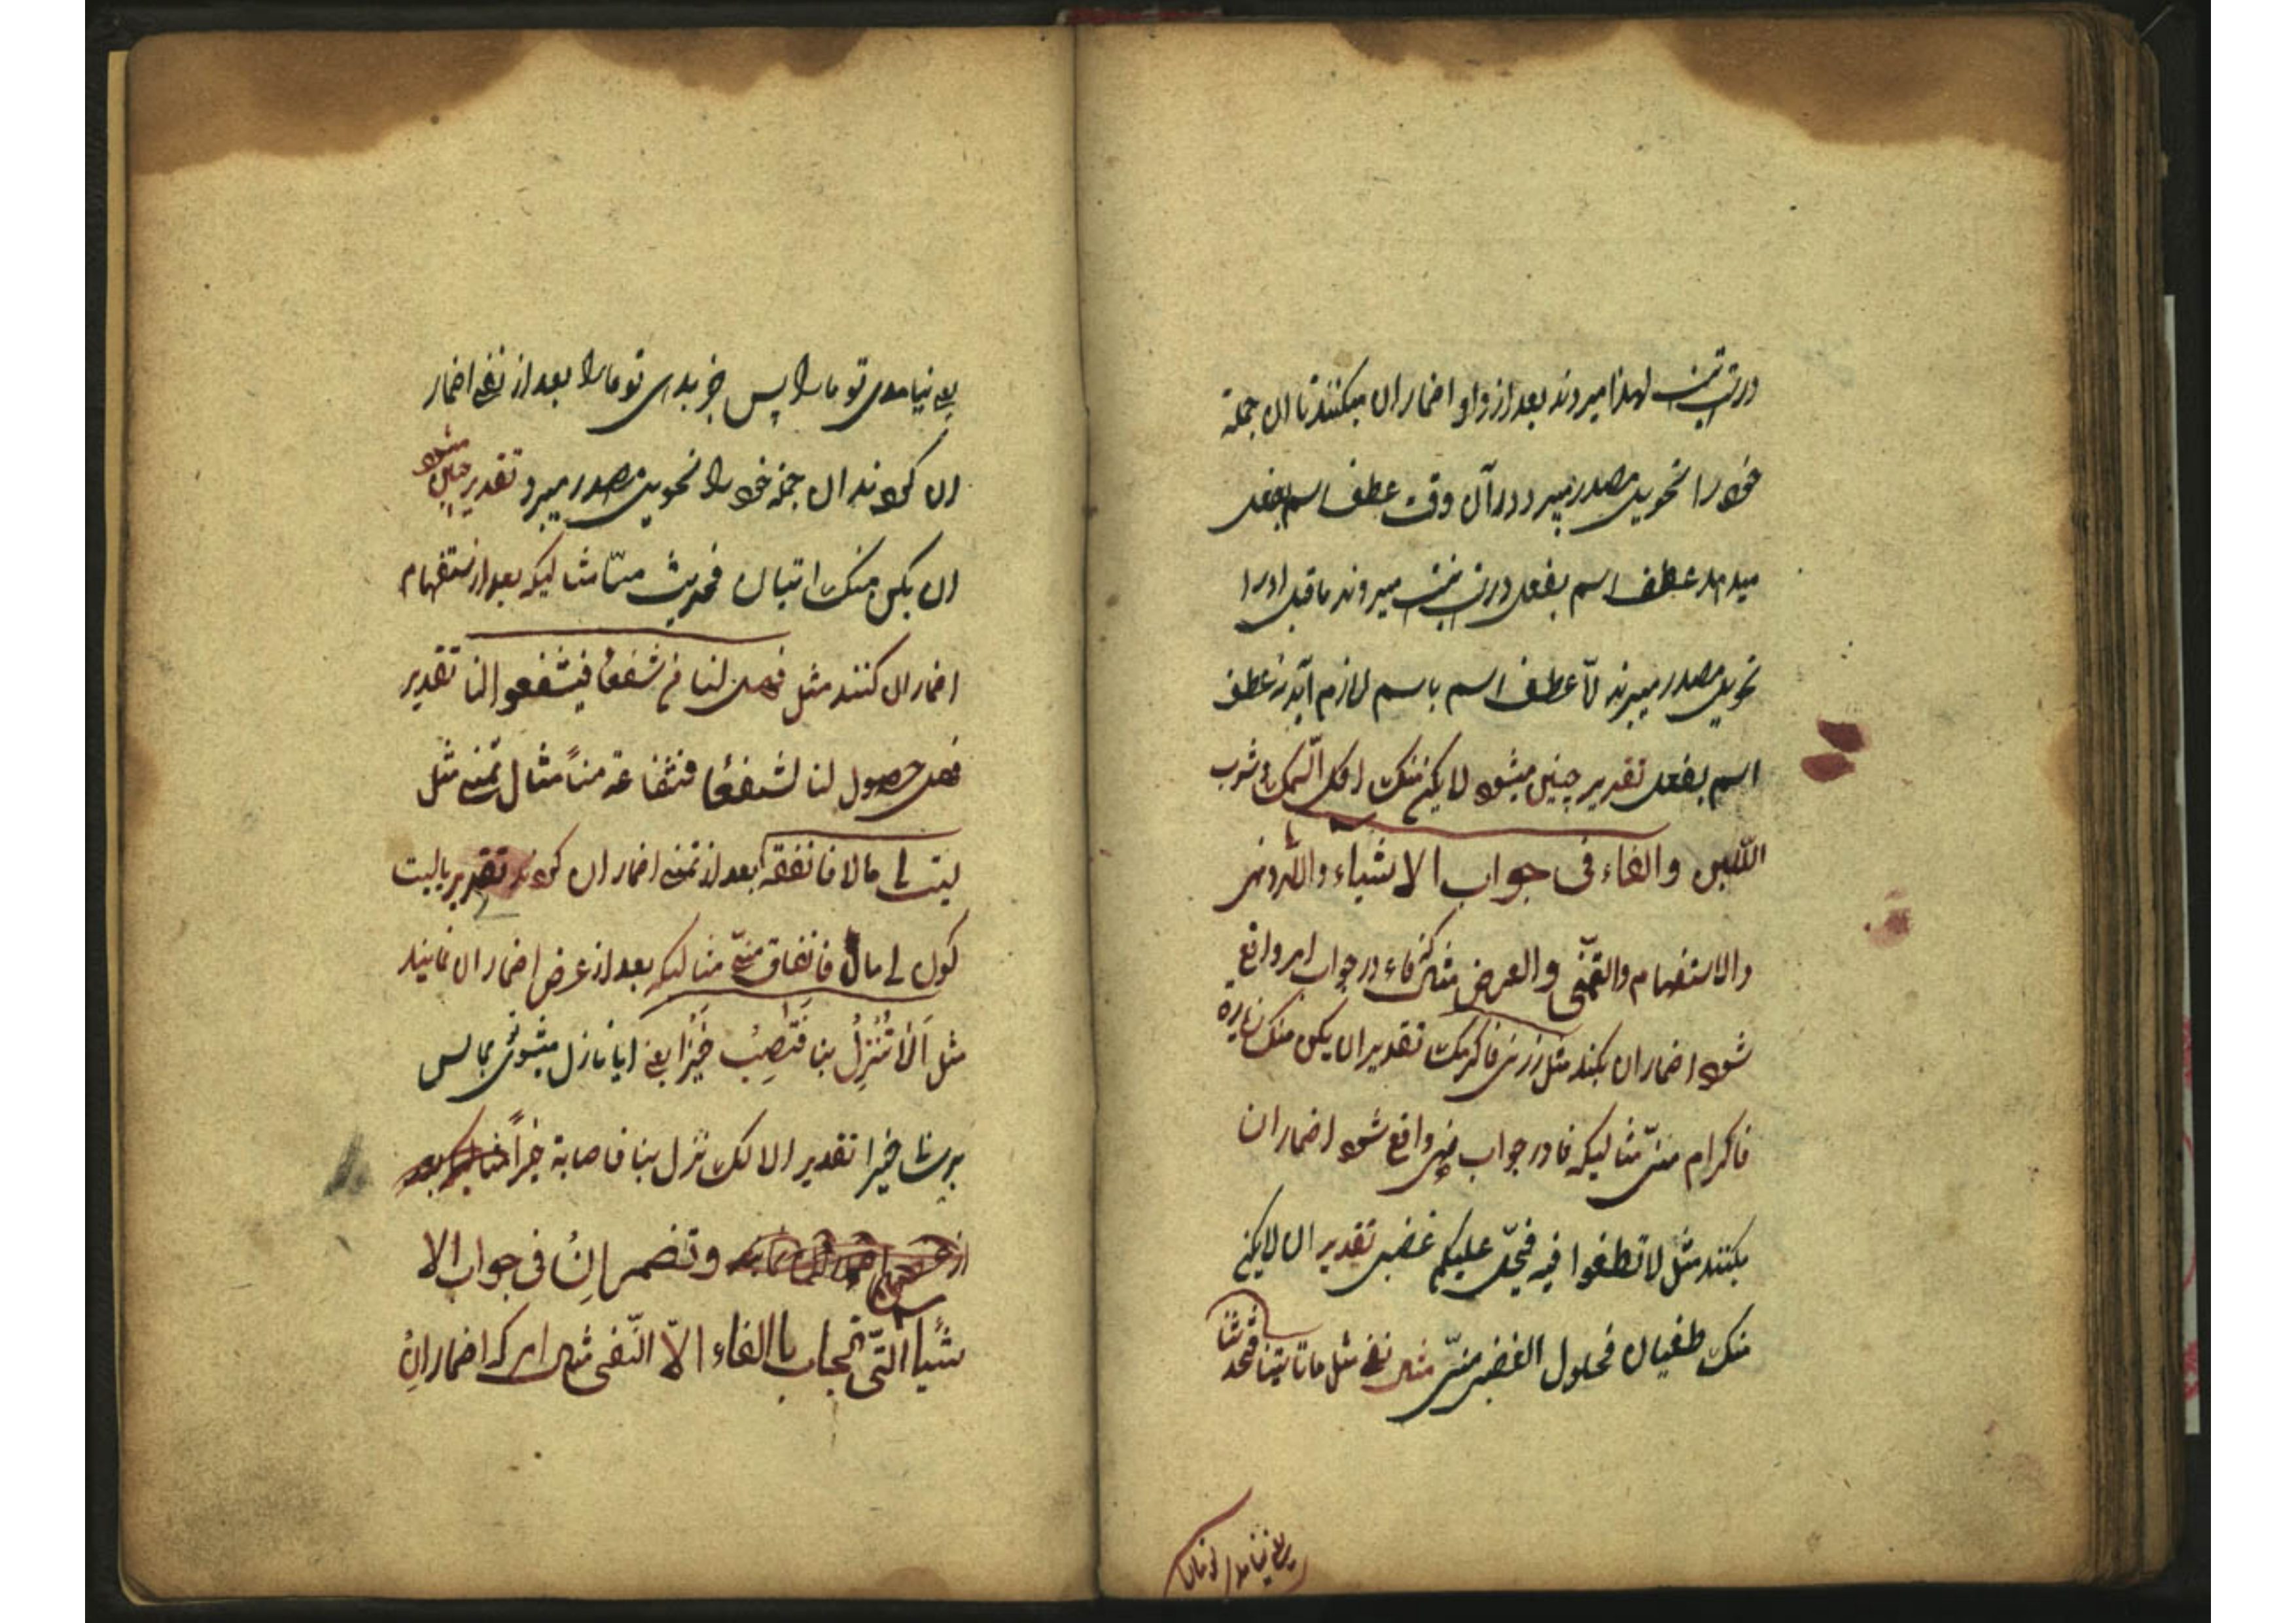 درست نیست لهذا میروند بعد از واو اضمار ان میکنند تا ان جمله
خود را تحویل مصدر میبرد در آن وقت عطف اسم بفعل
میدهد عطف اسم بفعل درست نیست میروند ماقبل او را
تحویل مصدر میبرند تا عطف اسم باسم لازم آید نه عطف
اسم بفعل تقدیر چنین میشود لا یکن منک اکل السمک و شرب
اللبن والفاء فی جواب الاشیاء والامر و نهی
والاستفهام والتمنّی والعرض مثال که فاء در جواب امر واقع
شود اضمار ان بکند مثل زرنی فاکرمک تقدیر ان یکن منک زیارة
فاکرام منّی مثالیکه فا در جواب نهی واقع شود اضمار ان
بکنند مثل لا تطغوا فیه فیحلّ علیکم غضبی تقدیر ان لا یکن
منک طغیان فحلول الغضب منّی مثال نفی مثل ما تاتینا فتحدثنا
یعنی نیامدی تو مارا
یعنی نیامدی تو مارا پس خبر بدی تو مارا بعد از نفی اضمار
ان کردند ان جمله خود را تحویل مصدر میبرد تقدیر چنین میشود
ان یکن منک اتیان فحدیث منّا مثالیکه بعد از استفهام
اضمار ان کنند مثل فهل لنا من شفعا فیشفعوا لنا تقدیر
فهل حصول لنا لشفعًا فشفاعة مناً مثال تمنی مثل
لیت لی مالا فانفقه بعد از تمنی اضمار ان کردند تقدیر یا لیت
کول لی مال فانفاق منّی مثالیکه بعد از عرض اضمار ان نمایند
مثل اَلا تَنْزِلُ بنا فَتَصِیْبَ خَیْرَا یعنی ایا نازل میشوی بما پس
برسد خیرا تقدیر الا لک نزل بنا فاصابة خیراً
وتضمر اِنْ فی جواب الا
شیا الّتی تجاب باالفاء الاّ النّفی مثال امر که اضمار اِنْ